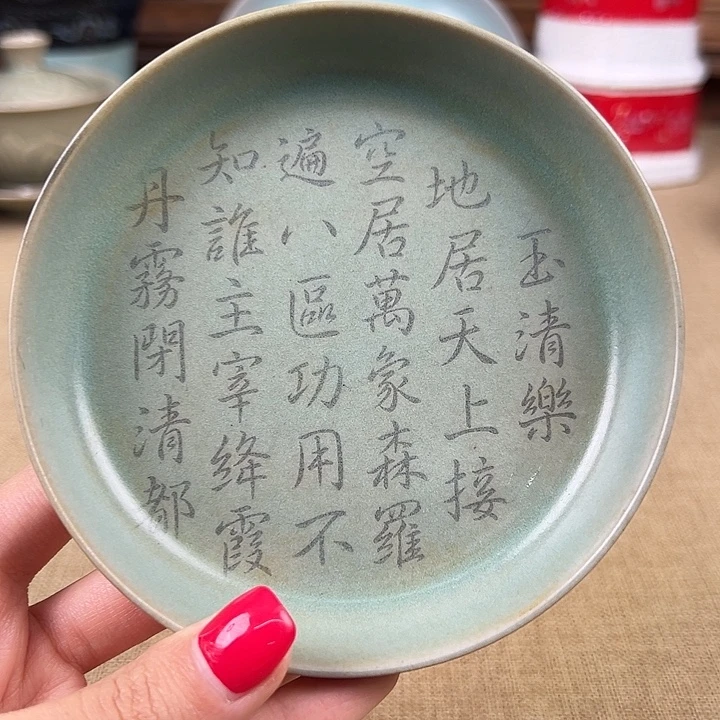 玉清樂
地居天上接
空居萬象森羅
遍八區功用不
知誰主宰絳霞
丹霧閉清都